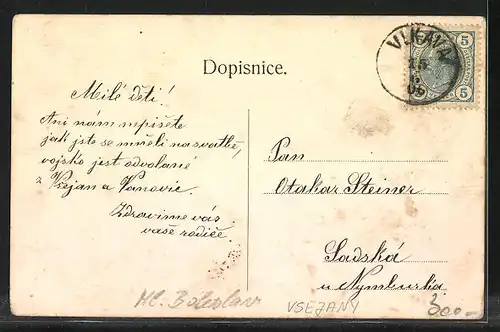 Dopisnice.
VLKAVA
5 5
Milé děti!
Ani nám nepišete
jak jste se měli na svatbě,
vojsko jest odvolané
z Vsejan a Vanovic.
Zdravíme vás
vaše rodiče.
Pan
Otakar Steiner
Sadská
u Nymburka
Ml. Boleslav
VSEJANY
300-